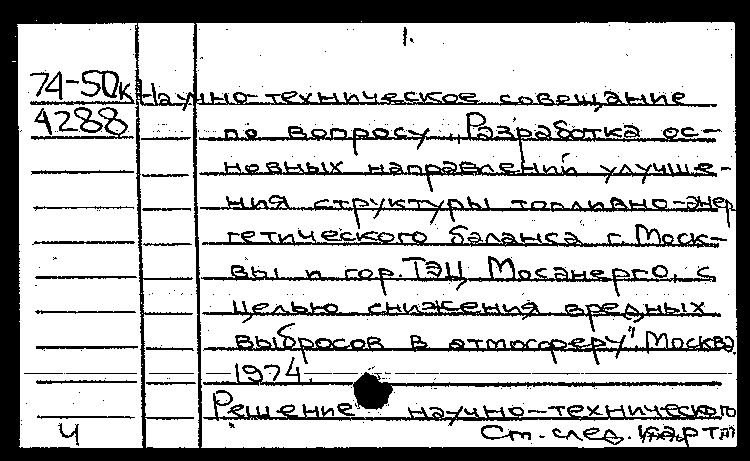 1.
74-50к Научно-техническое совещание
4288 по вопросу „Разработка ос-
новных направлений улучше-
ния структуры топливно-энер
гетического баланса г. Моск-
вы и гор. ТЭЦ Мосэнерго, с
целью снижения вредных
выбросов в атмосферу". Москва
1974.
Решение научно-технического
Ч Ст. след. карт